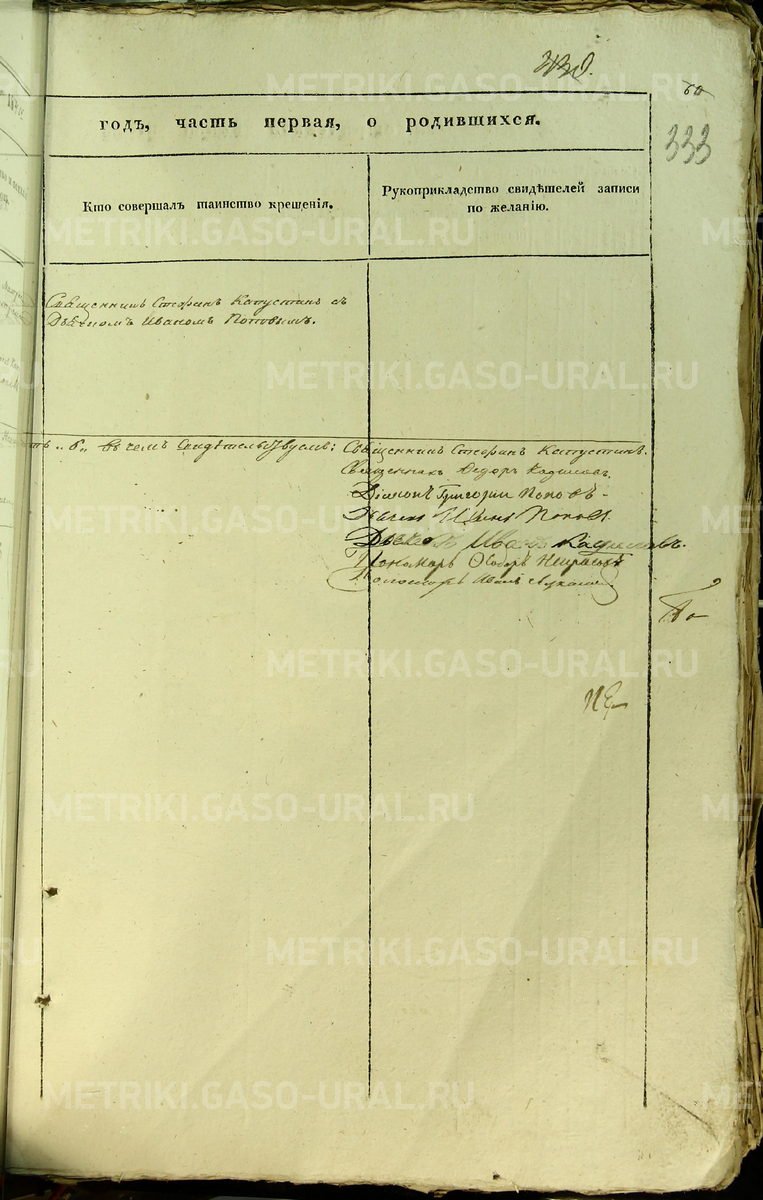 60
333
годъ, часть первая, о родившихся.
Кто совершалъ таинство крещенія.
Рукоприкладство свидѣтелей записи
по желанію.
Священникъ Стефанъ Капустинъ съ
Дьячкомъ Иваномъ Поповымъ.
въ чемъ Свидѣтельствуемъ: Священникъ Стефанъ Капустинъ.
Священникъ Федоръ
Діаконъ Григорий Поповъ
Дьячекъ Иванъ Поповъ
Дьячекъ Иванъ
Пономарь Феодоръ Некрасовъ
Пономарь Иванъ
METRIKI.GASO-URAL.RU